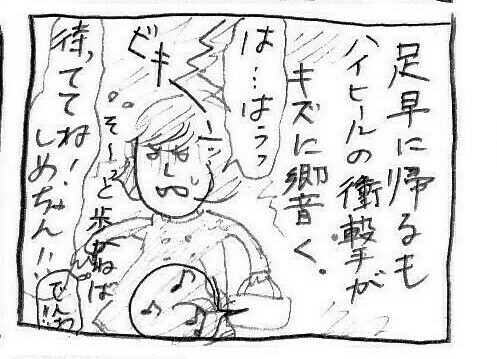 足早に帰るも
ハイヒールの衝撃が
キズに響く。
は…はうっ
ビキーッ
そ〜っと歩かねば
待っててね!
しめちゃん!!